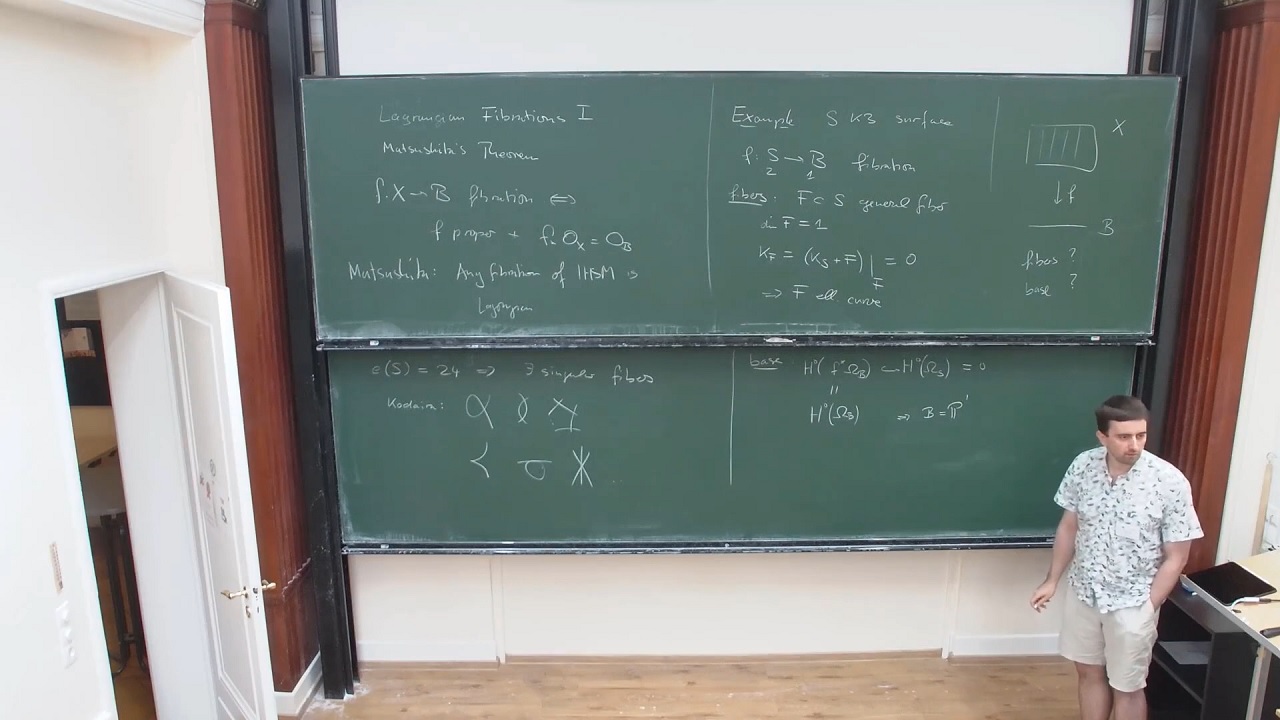 Lagrangian Fibrations I
Matsushita's Theorem
f: X → B fibration ⇔
f proper + f_* O_X = O_B
Matsushita: Any fibration of IHSM is
Lagrangian
Example S K3 surface
f: S → B fibration
2 1
fibers: F ⊂ S general fiber
dim F = 1
K_F = (K_S + F)|_F = 0
⇒ F ell curve
X
↓ f
B
fibers ?
base ?
e(S) = 24 ⇒ ∃ singular fibers
Kodaira:
base H⁰(f*Ω_B) ↪ H⁰(Ω_S) = 0
||
H⁰(Ω_B) ⇒ B = ℙ¹